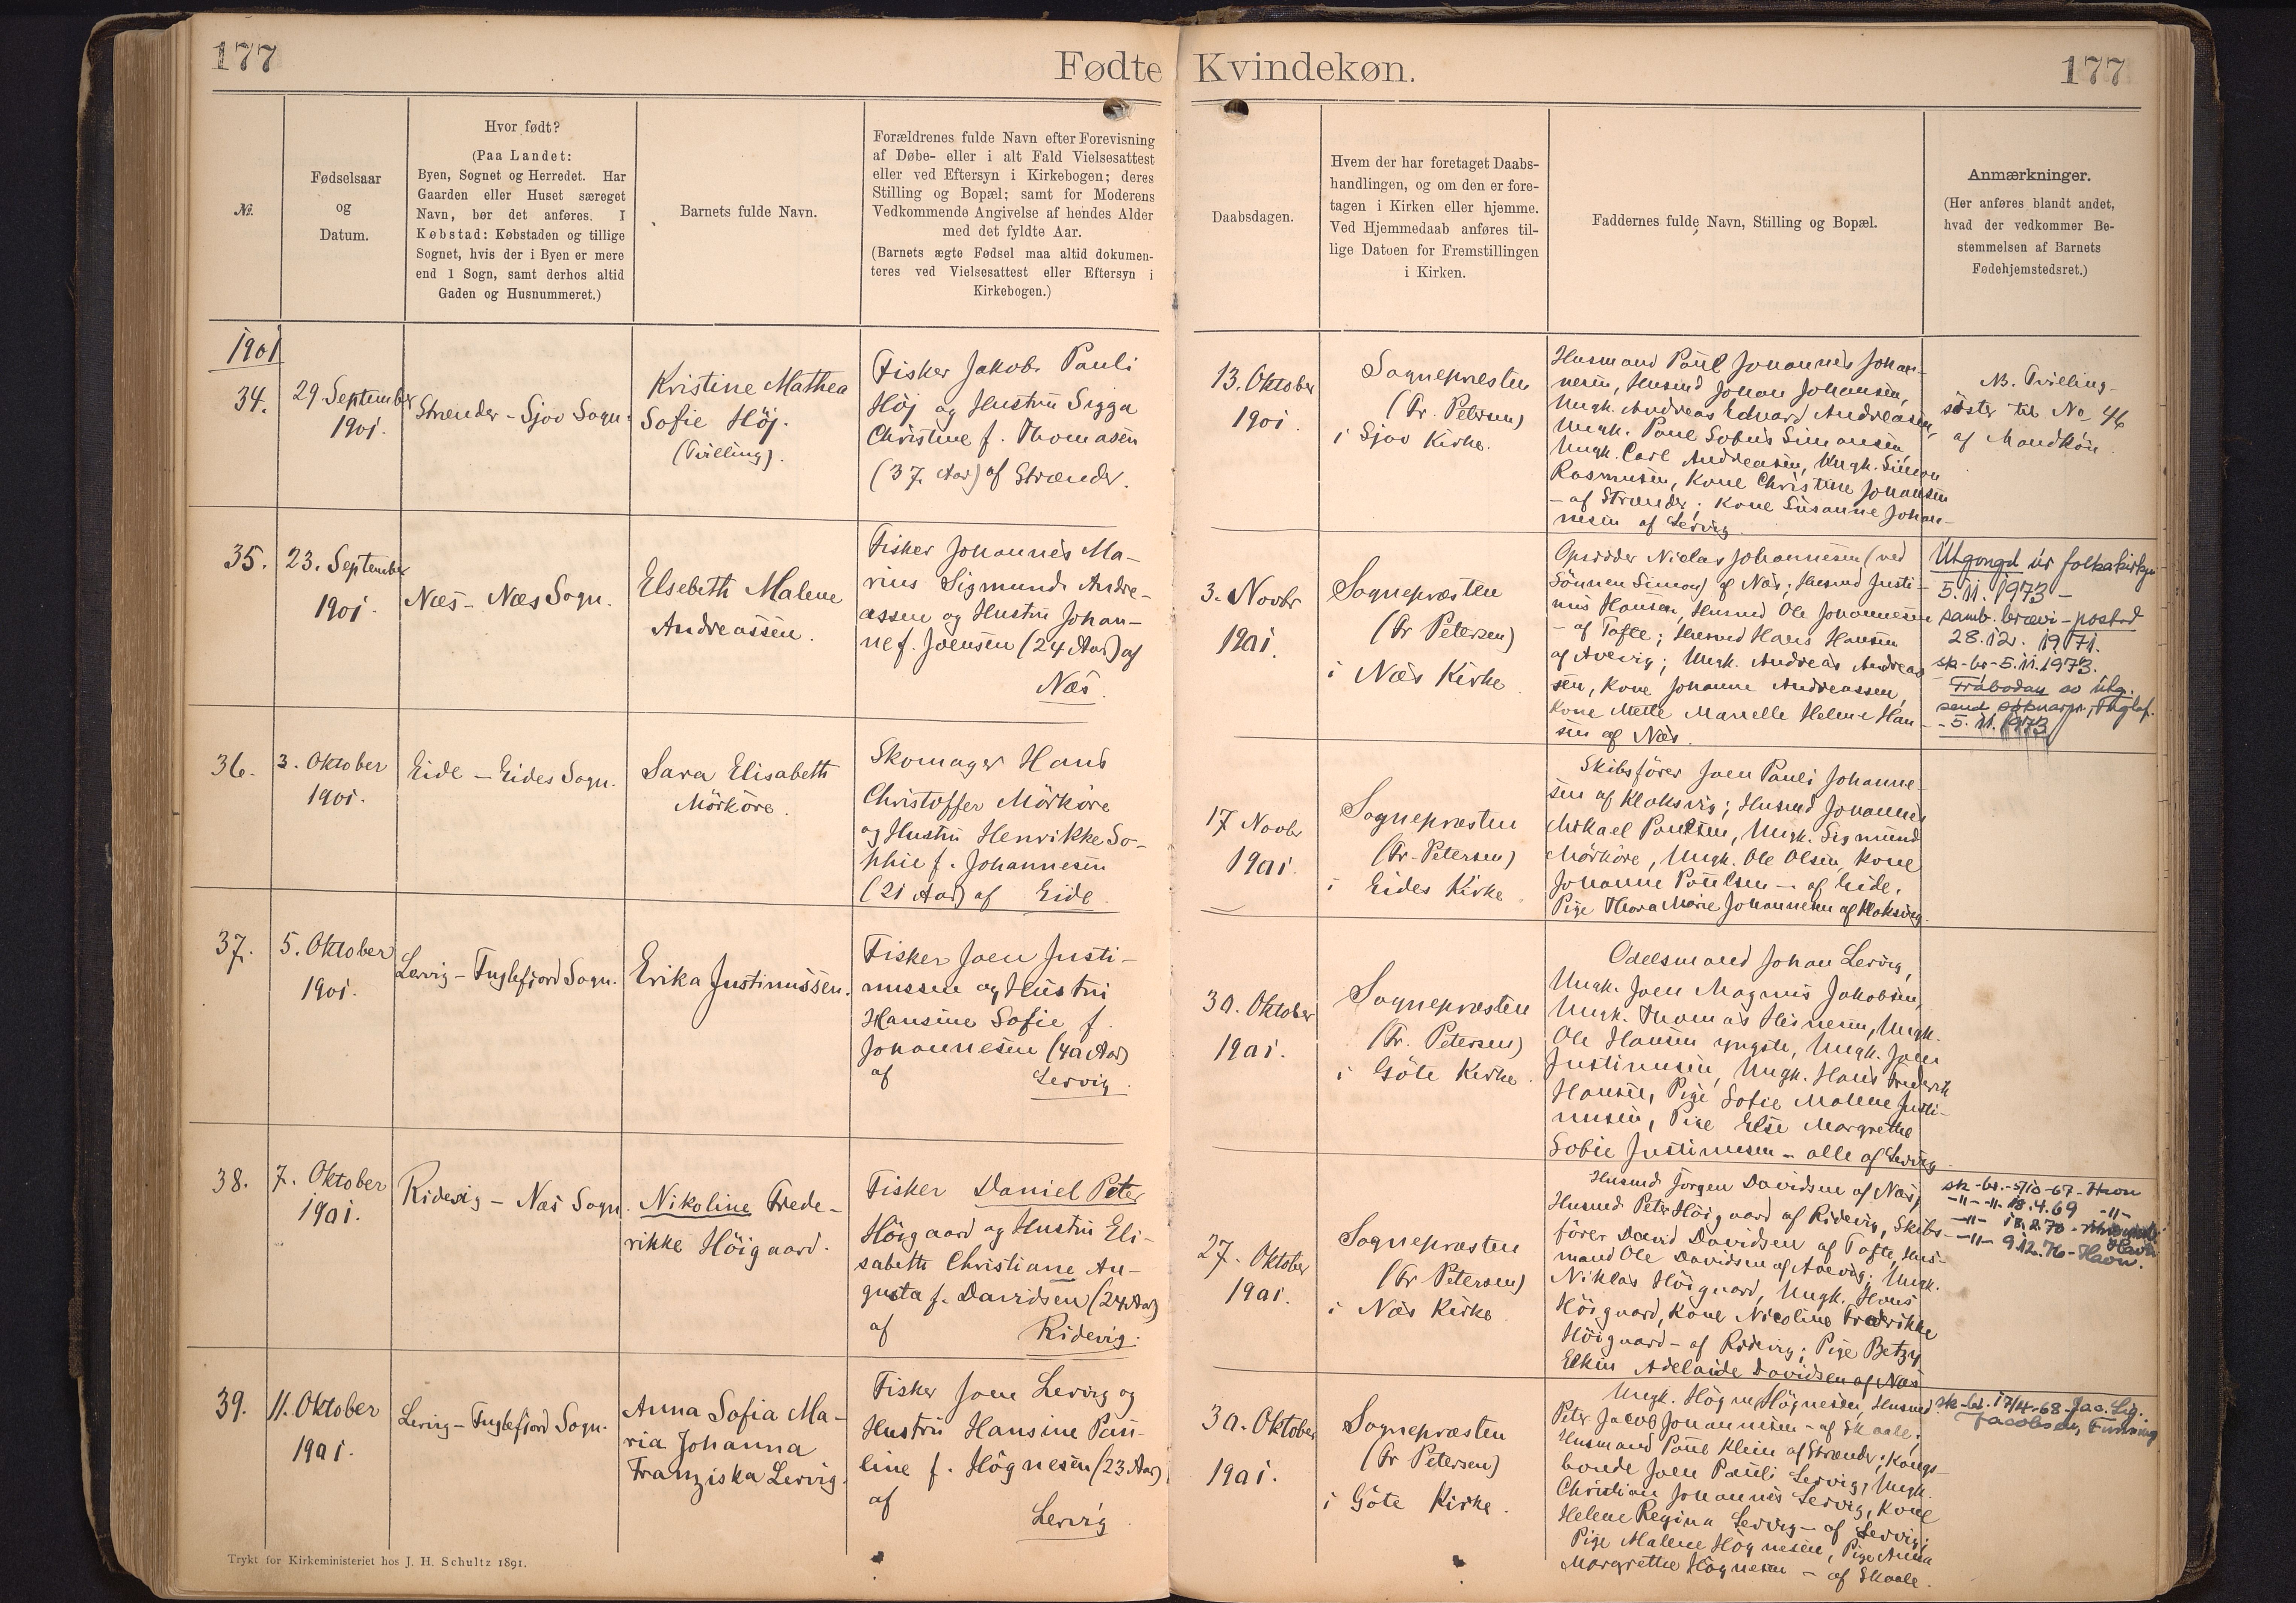 177
Fødte
Kvindekøn.
177
№.
Fødselsaar
og
Datum.
Hvor født?
(Paa Landet:
Byen, Sognet og Herredet. Har
Gaarden eller Huset særeget
Navn, bør det anføres. I
Købstad: Købstaden og tillige
Sognet, hvis der i Byen er mere
end 1 Sogn, samt derhos altid
Gaden og Husnummeret.)
Barnets fulde Navn.
Forældrenes fulde Navn efter Forevisning
af Døbe- eller i alt Fald Vielsesattest
eller ved Eftersyn i Kirkebogen; deres
Stilling og Bopæl; samt for Moderens
Vedkommende Angivelse af hendes Alder
med det fyldte Aar.
(Barnets ægte Fødsel maa altid dokumen-
teres ved Vielsesattest eller Eftersyn i
Kirkebogen.)
Daabsdagen.
Hvem der har foretaget Daabs-
handlingen, og om den er fore-
tagen i Kirken eller hjemme.
Ved Hjemmedaab anføres til-
lige Datoen for Fremstillingen
i Kirken.
Faddernes fulde Navn, Stilling og Bopæl.
Anmærkninger.
(Her anføres blandt andet,
hvad der vedkommer Be-
stemmelsen af Barnets
Fødehjemstedsret.)
1901
34.
29 September
1901.
Strænder - Sjov Sogn.
Kristine Mathea
Sofie Höj.
(Tvilling).
Fisker Jakob Pauli
Höj og Hustru Sigga
Christine f. Thomasen
(37 Aar) af Strænder.
13. Oktober
1901.
Sognepræsten
(Fr. Petersen)
i Sjov Kirke.
Husmand Poul Johannes Johan-
nesen, Husmd Johan Johansen,
Ungk. Andreas Edvard Andreasen,
Ungk. Poul Sofus Simonsen,
Ungk. Carl Andreasen, Ungk. Simon
Rasmusen, Kone Christine Johansen
- af Strænder; Kone Susanne Johan-
nesen af Lervig.
NB. Tvilling-
söster til No 46
af Mandkön.
35.
23. September
1901.
Næs - Næs Sogn.
Elsebeth Malene
Andreassen.
Fisker Johannes Ma-
rius Sigmund Andre-
assen og Hustru Johan-
ne f. Joensen (24 Aar) af
Næs.
3. Novbr
1901.
Sognepræsten
(Fr Petersen)
i Næs Kirke.
Opsidder Niclas Johannesen (ved
Sönnen Simon) af Næs; Husmd Justi-
nus Hansen, Husmd Ole Johannesen
- af Tofte; Husmd Hans Hansen
af Avevig; Ungk. Andreas Andreas-
sen, Kone Johanne Andreassen,
Kone Mette Marielle Helene Han-
sen af Næs.
Útgongd úr fólkakirkju
5.11.1973 -
samb. brævi - postad
28.12.1971.
sk-br-5.11.1973.
Fráboðan so útg.
send sóknarpr. Fuglaf.
- 5.11.1973
36.
3. Oktober
1901.
Eide - Eides Sogn.
Sara Elisabeth
Mörköre.
Skomager Hans
Christoffer Mörköre
og Hustru Henrikke So-
phie f. Johannesen
(21 Aar) af Eide.
17 Novbr
1901.
Sognepræsten
(Fr. Petersen)
i Eides Kirke
Skibsförer Joen Pauli Johanne-
sen af Klaksvig; Husmd Johannes
Mikael Poulsen, Ungk. Sigmund
Mörköre, Ungk. Ole Olsen, Kone
Johanne Poulsen - af Eide.
Pige Thora Marie Johannesen af Klaksvig.
37.
5. Oktober
1901.
Lervig - Fuglefjord Sogn.
Erika Justinussen.
Fisker Joen Justi-
nussen og Hustru
Hansine Sofie f.
Johannesen (40 Aar)
af Lervig.
30. Oktober
1901.
Sognepræsten
(Fr. Petersen)
i Göte Kirke.
Odelsmand Johan Lervig,
Ungk. Joen Magnus Jakobsen,
Ungk. Thomas Heinesen, Ungk.
Ole Hansen yngste, Ungk. Joen
Justinusen, Ungk. Hans Frederik
Hansen, Pige Sofie Malene Justi-
nusen, Pige Else Margrethe
Sofie Justinusen - alle af Lervig
38.
7. Oktober
1901.
Ridevig - Næs Sogn.
Nikoline Frede-
rikke Höigaard.
Fisker Daniel Peter
Höigaard og Hustru Eli-
sabeth Christiane Au-
gusta f. Davidsen (24 Aar)
af Ridevig.
27. Oktober
1901.
Sognepræsten
(Fr Petersen)
i Næs Kirke.
Husmd Jörgen Davidsen af Næs,
Husmd Peter Höigaard af Ridevig, Skibs-
förer David Davidsen af Tofte, Hus-
mand Ole Davidsen af Avevig; Ungk.
Niklas Höigaard, Ungk. Hans
Höigaard, Kone Nicoline Frederikke
Höigaard - af Ridevig; Pige Betzy
Elkin Adelaide Davidsen af Næs
sk-br.-5/10-67-Havn
-"- -"- 18.4.69 -"-
-"- 18.8.70 -
Havn
-"- 9.12.76 - Havn.
39.
11. Oktober
1901.
Lervig - Fuglefjord Sogn.
Anna Sofia Ma-
ria Johanna
Franziska Lervig.
Fisker Joen Lervig og
Hustru Hansine Pau-
line f. Högnesen (23 Aar)
af
Lervig.
30. Oktober
1901.
Sognepræsten
(Fr Petersen)
i Göte Kirke.
Ungk. Högne Högnesen, Husmd
Peter Jacob Johannesen - af Skaale;
Husmand Poul Klein af Strænder; Kongs-
bonde Joen Pauli Lervig, Ungk.
Christian Johannes Lervig, Kone
Helene Regina Lervig - af Lervig;
Pige Malene Högnesen, Pige Anna
Margrethe Högnesen - af Skaale.
sk-br. 17/4-68 - Jac. Lig.
Jacobsen,
Trykt for Kirkeministeriet hos J. H. Schultz 1891.